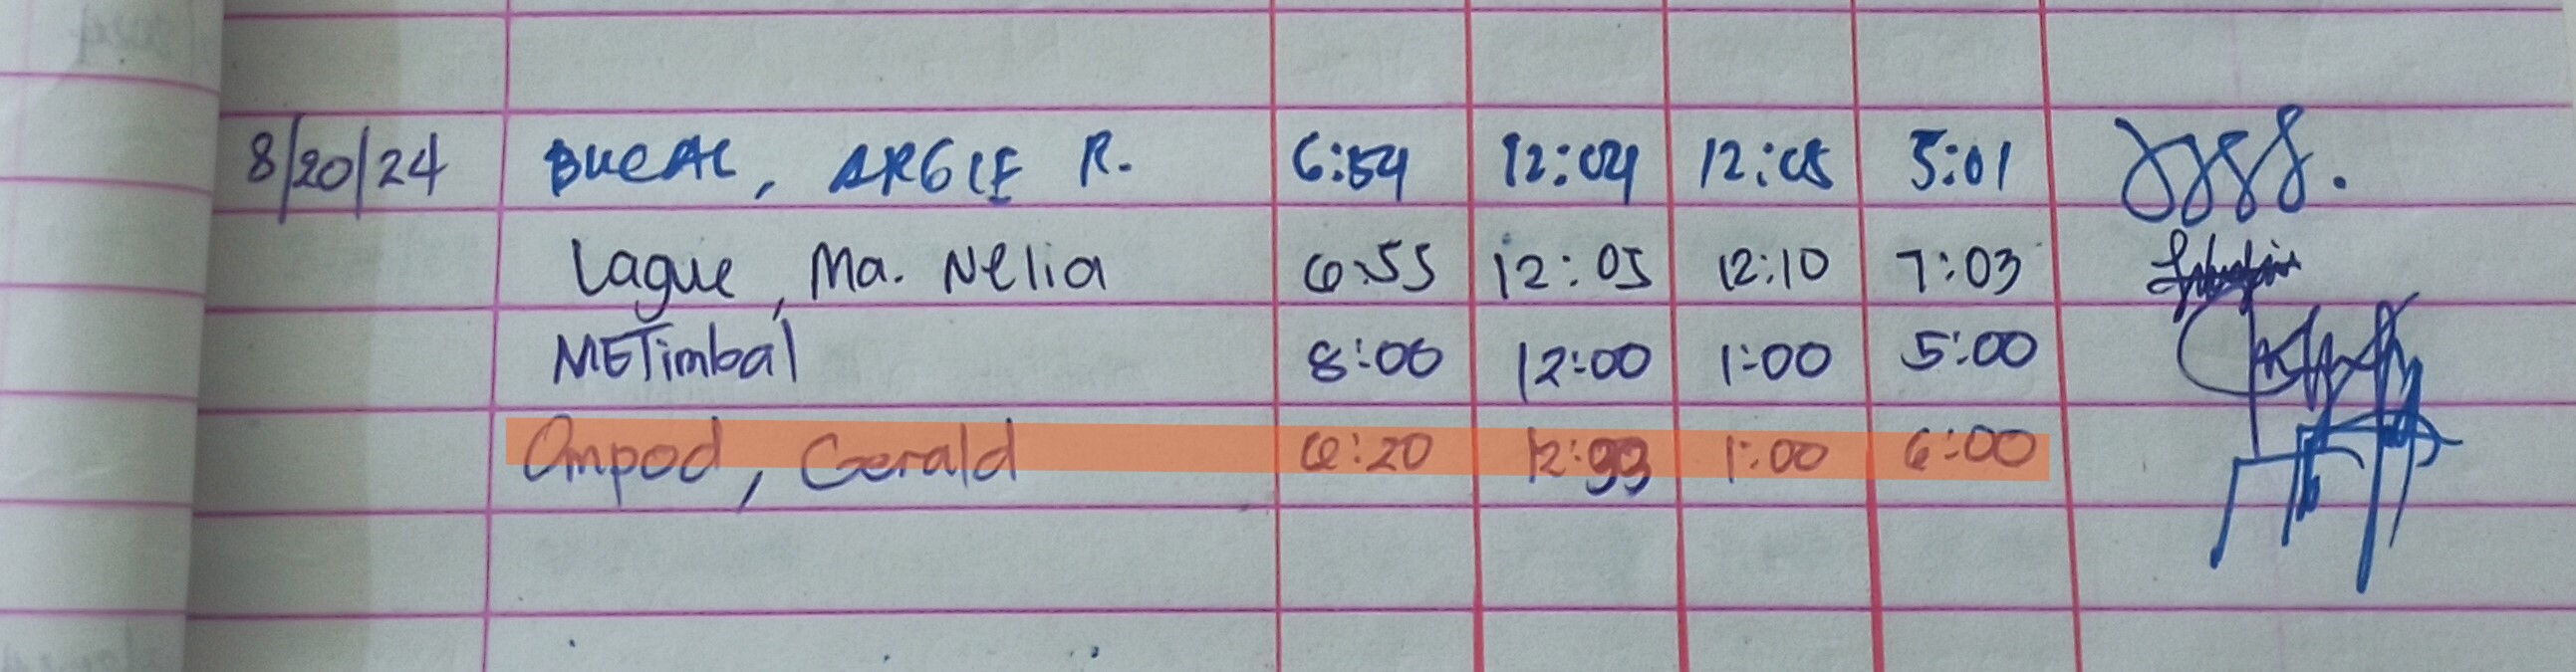 8/20/24 BUCAL, ARGIE R. 6:54 12:04 12:05 5:01
Lague, Ma. Nelia 6:55 12:05 12:10 7:03
METimbal 8:00 12:00 1:00 5:00
Ompod, Gerald 6:20 1:00 6:00